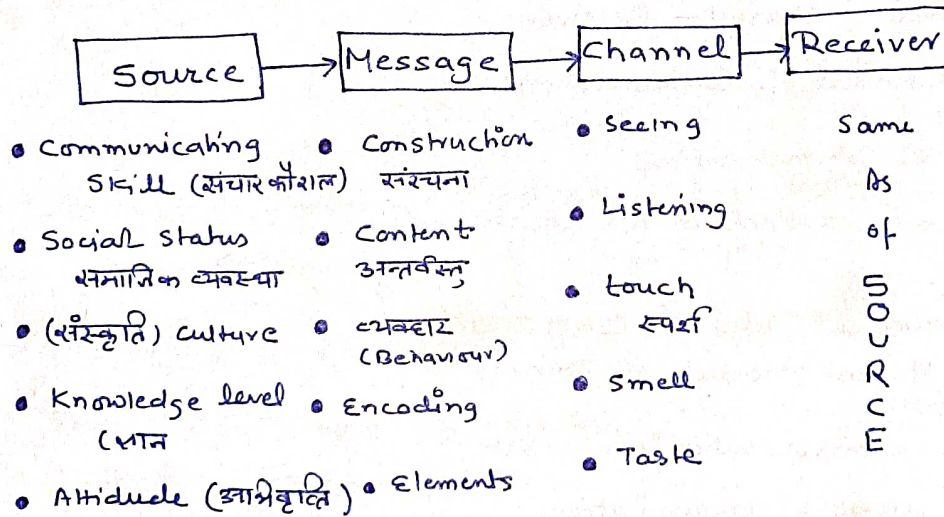 Source
Message
Channel
Receiver
• Communicating
Skill (संचार कौशल)
• Social Status
समाजिक व्यवस्था
• (संस्कृति) Culture
• Knowledge level
(ज्ञान
• Attidude (अभिवृत्ति)
• Construction
संरचना
• Content
अन्तर्वस्तु
• व्यवहार
(Behaviour)
• Encoding
• Elements
• Seeing
• Listening
• touch
स्पर्श
• Smell
• Taste
Same
As
of
S
O
U
R
C
E